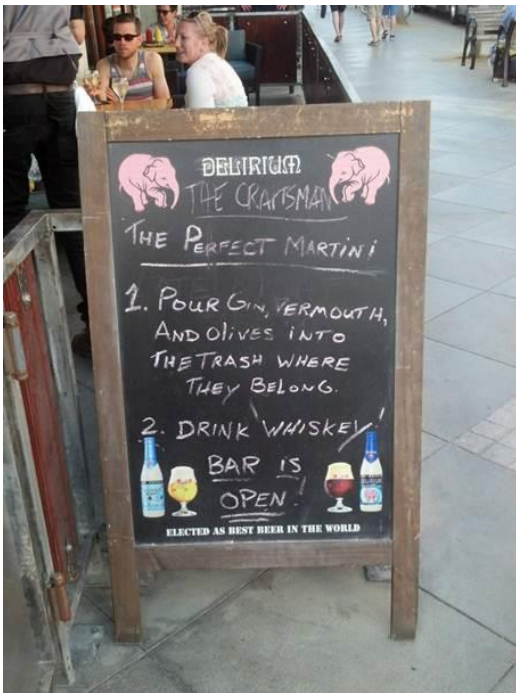 DELIRIUM
THE CRAFTSMAN
THE PERFECT MARTINI
1. POUR GIN, VERMOUTH,
AND OLIVES INTO
THE TRASH WHERE
THEY BELONG.
2. DRINK WHISKEY!
BAR IS
OPEN!
ELECTED AS BEST BEER IN THE WORLD